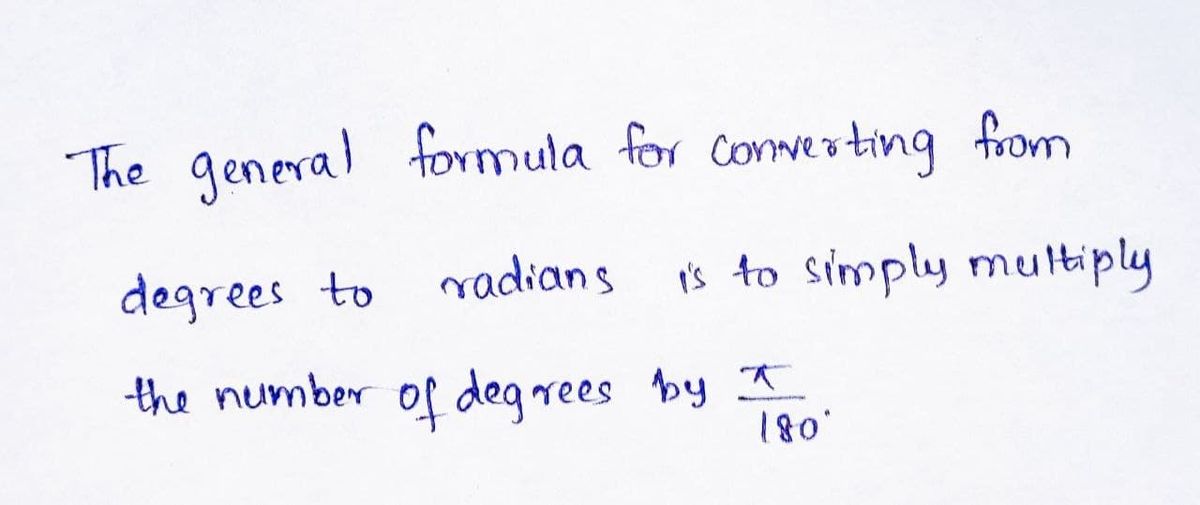 The general formula for converting from
degrees to radians is to simply multiply
the number of degrees by π/180°